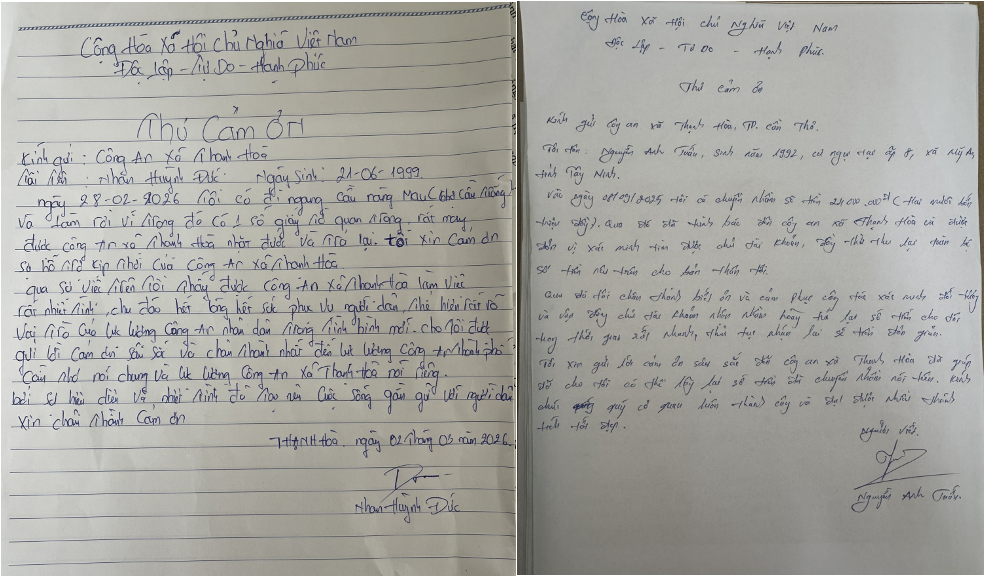 Cộng Hòa Xã Hội Chủ Nghĩa Việt Nam
Độc Lập - Tự Do - Hạnh Phúc
Thư Cảm Ơn
Kính gửi : Công An Xã Thạnh Hoà
Tôi tên : Nhan Huỳnh Đức. Ngày Sinh: 21-06-1999.
ngày 28-02-2026 Tôi có đi ngang cầu nàng Mau
và làm rơi ví trong đó có 1 số giấy tờ quan trọng, rất may
được công An xã Thạnh Hoà nhặt được và trả lại. tôi xin Cám ơn
sự hỗ trợ kịp thời Của Công An Xã Thạnh Hoà.
qua sự Việc trên tôi thấy được Công An Xã Thạnh Hoà làm Việc
rất nhiệt tình, chu đáo hết lòng hết sức phục vụ người dân, thể hiện rất rõ
Vai trò Của lực lượng Công An nhân dân trong tình hình mới. cho tôi được
gửi lời Cám ơn sâu sắc và chân thành nhất đến lực lượng Công An thành phố
Cần thơ nói chung và lực lượng Công An Xã Thạnh Hoà nói riêng.
bởi sự và nhiệt tình đã tạo nên Cuộc sống gần gũi với người dân
xin chân thành Cám ơn
THẠNH Hòa. ngày 02 tháng 03 năm 2026.
Nhan Huỳnh Đức
Cộng Hòa Xã Hội Chủ Nghĩa Việt Nam
Độc Lập - Tự Do - Hạnh Phúc.
Thư cảm ơn
Kính gửi Công an xã Thạnh Hòa, TP. Cần Thơ.
Tôi tên. Nguyễn Anh Tuấn, sinh năm 1992, cư ngụ tại ấp 8, xã Mỹ An,
tỉnh Tây Ninh.
Vào ngày 08/09/2025 tôi có chuyển nhầm số tiền (Hai mươi
triệu đồng). Qua đó đã trình báo đến công an xã Thạnh Hòa và được
đơn vị xác minh tìm được chủ tài khoản, đồng thời thu lại toàn bộ
số tiền nêu trên cho bản thân tôi.
Qua đó tôi chân thành biết ơn và cảm phục công tác xác minh đối tượng
và vận động chủ tài khoản nhận nhầm hoàn trả lại số tiền cho tôi,
trong thời gian rất nhanh, thủ tục nhận lại số tiền đơn giản.
Tôi xin gửi lời cảm ơn sâu sắc đến công an xã Thạnh Hòa đã giúp
đỡ cho tôi có thể lấy lại số tiền đã chuyển nhầm nói trên. Kính
chúc quý cơ quan luôn thành công và đạt được nhiều thành
tích tốt đẹp.
Người viết.
Nguyễn Anh Tuấn.